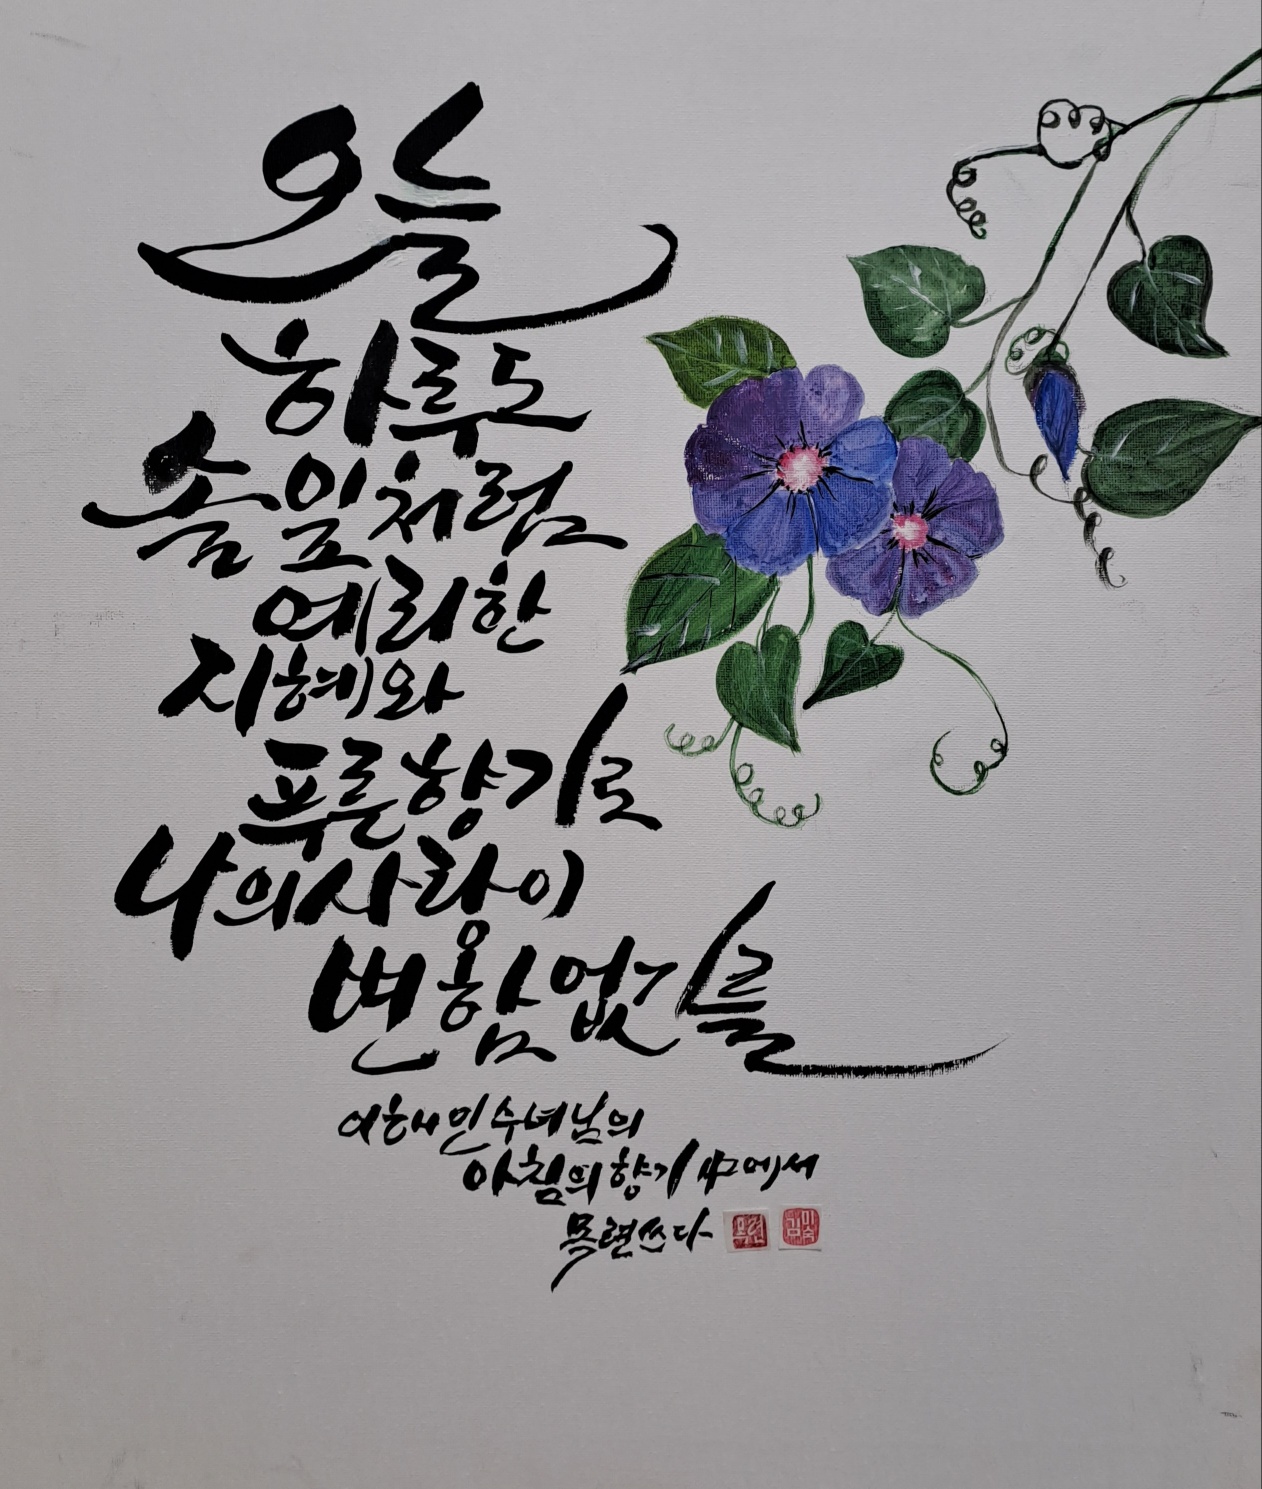 오늘
하루도
솔잎처럼
예리한
지혜와
푸른 향기로
나의 사랑이
변함없기를
이해인 수녀님의
아침의 향기 中에서
목련 쓰다
목련
김미숙